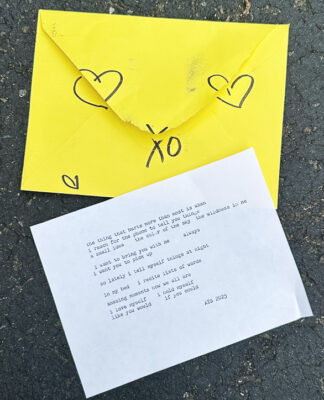 XO
the thing that hurts more than most is when
i reach for the phone to tell you things
a small idea   the color of the sky   the wildness in me
i want to bring you with me   always
i want you to pick up
so lately i tell myself things at night
in my bed   i recite lists of words
amazing moments how we all are
i love myself   i hold myself
like you would   if you could
ATS 2023